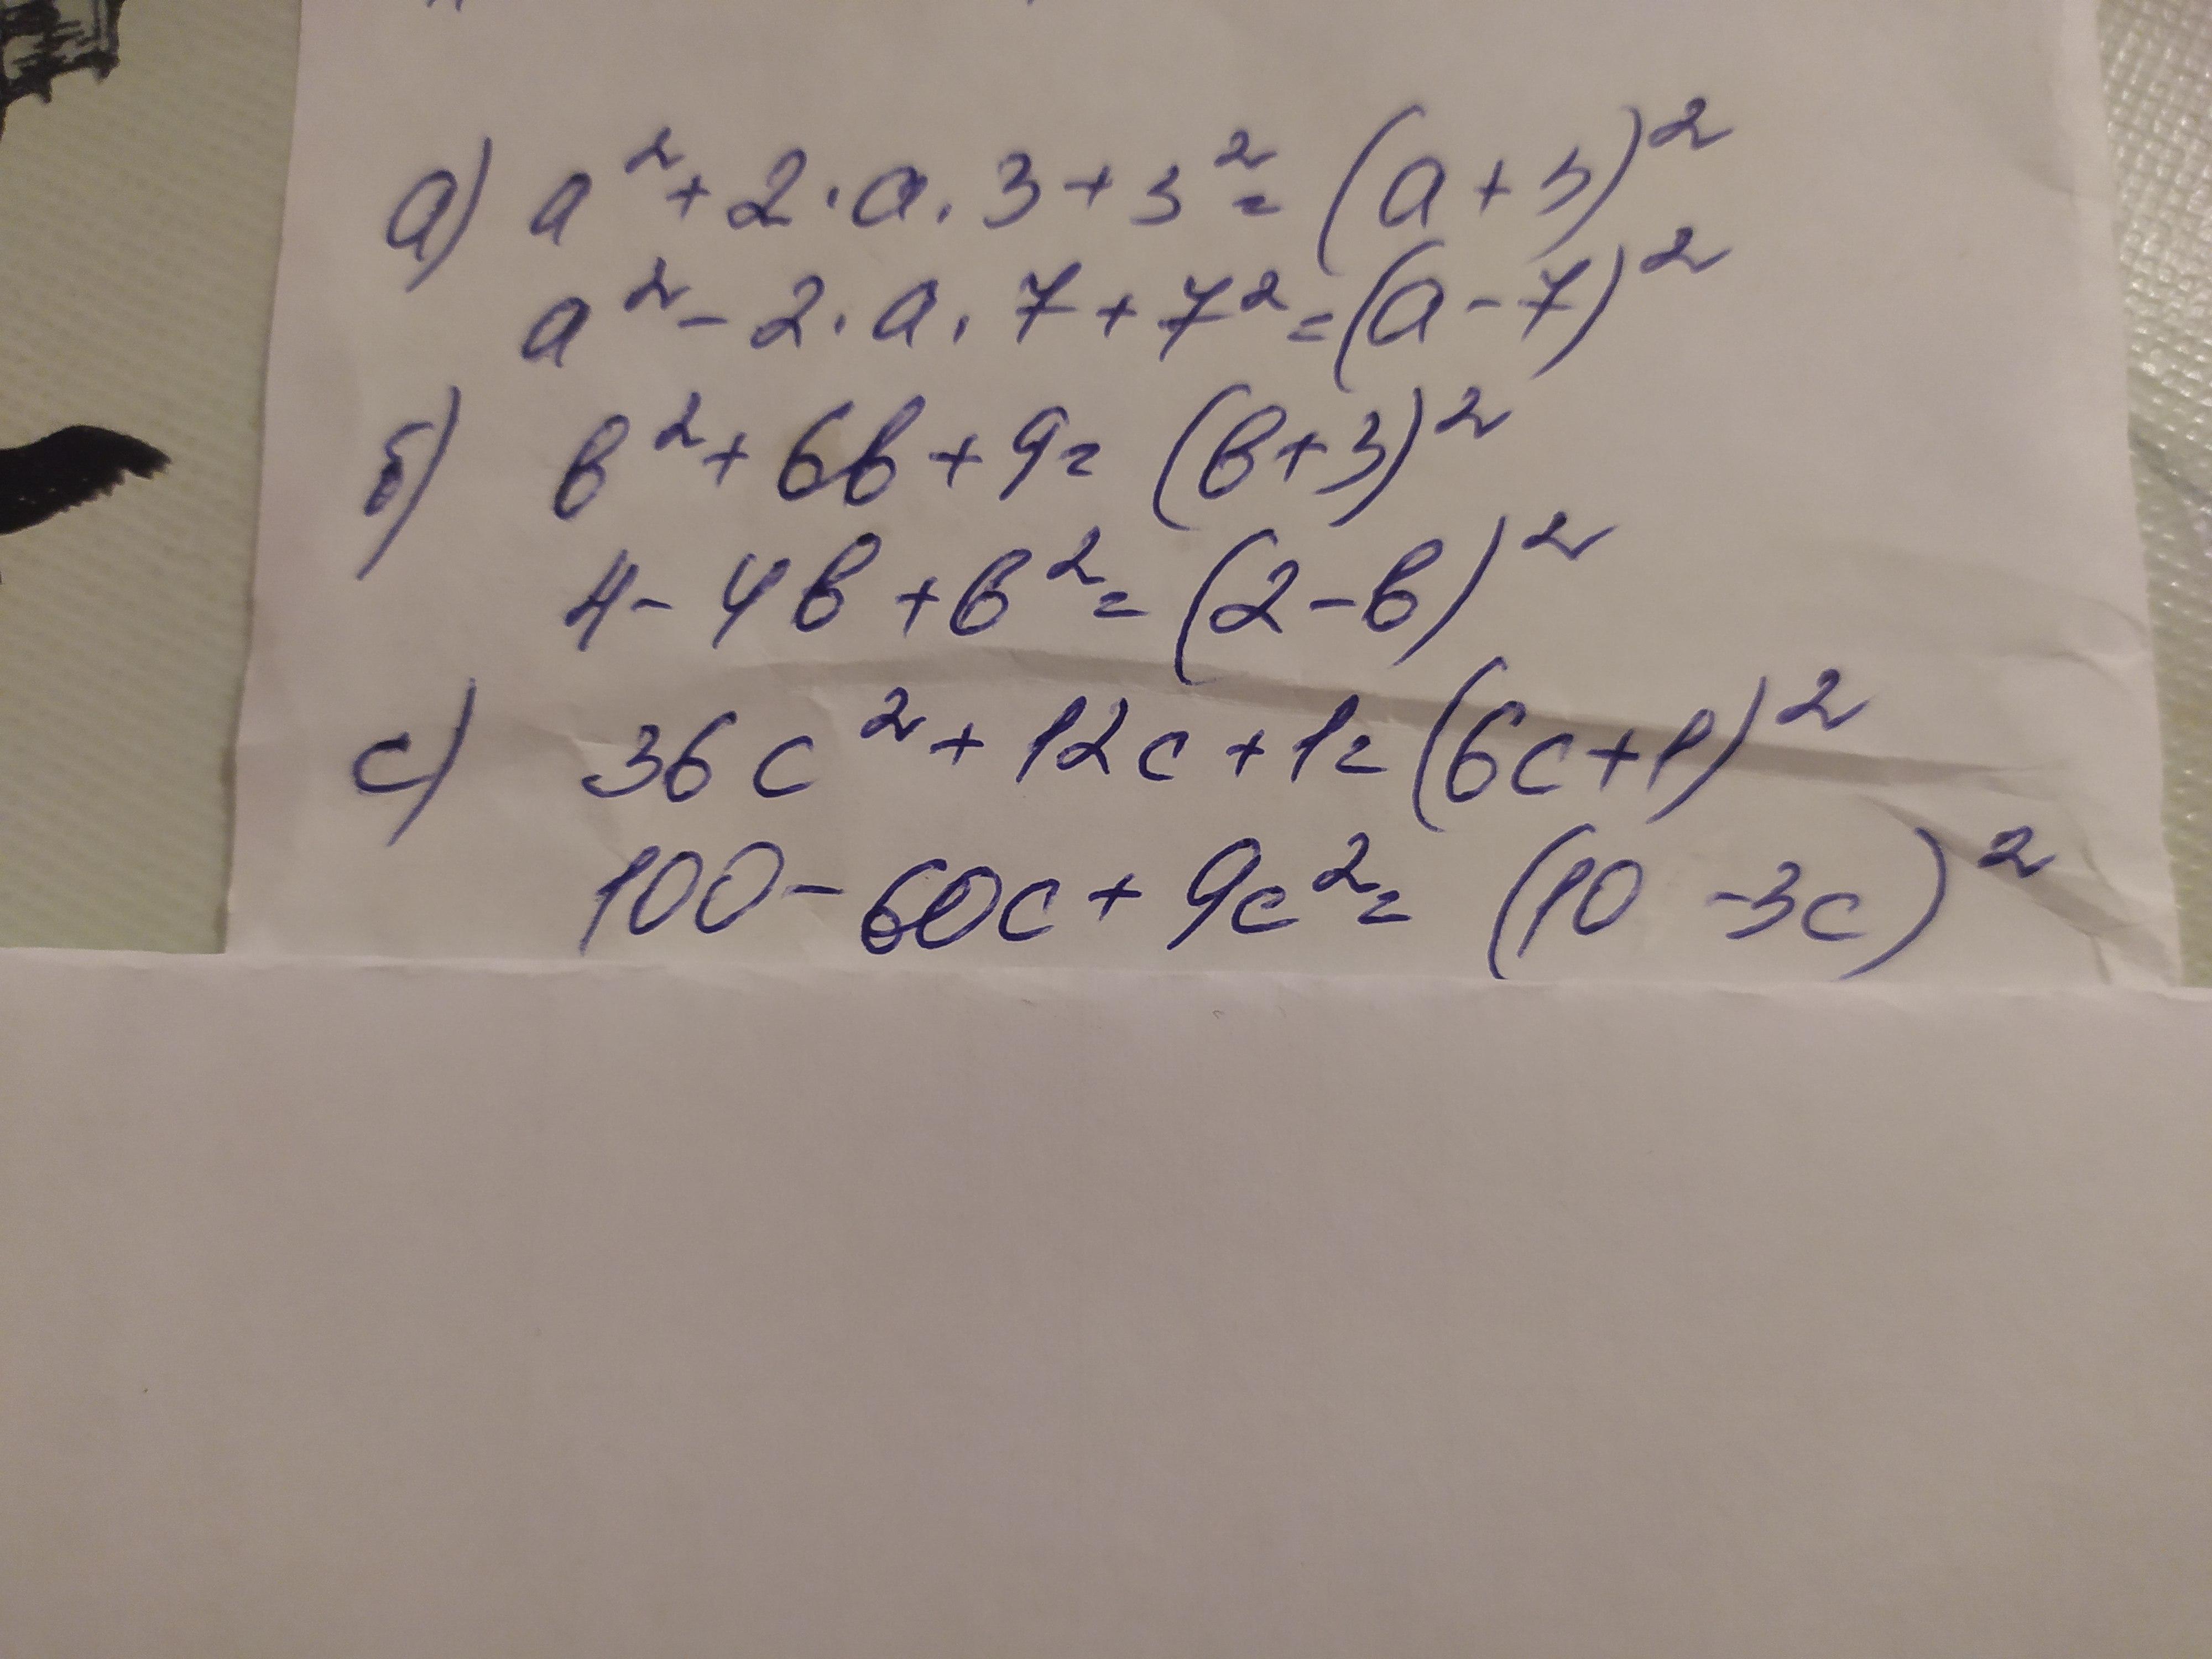 а) a² + 2 · a · 3 + 3² = (a + 3)²
a² - 2 · a · 7 + 7² = (a - 7)²
б) в² + 6в + 9 = (в + 3)²
4 - 4в + в² = (2 - в)²
с) 36с² + 12с + 1 = (6с + 1)²
100 - 60с + 9с² = (10 - 3с)²